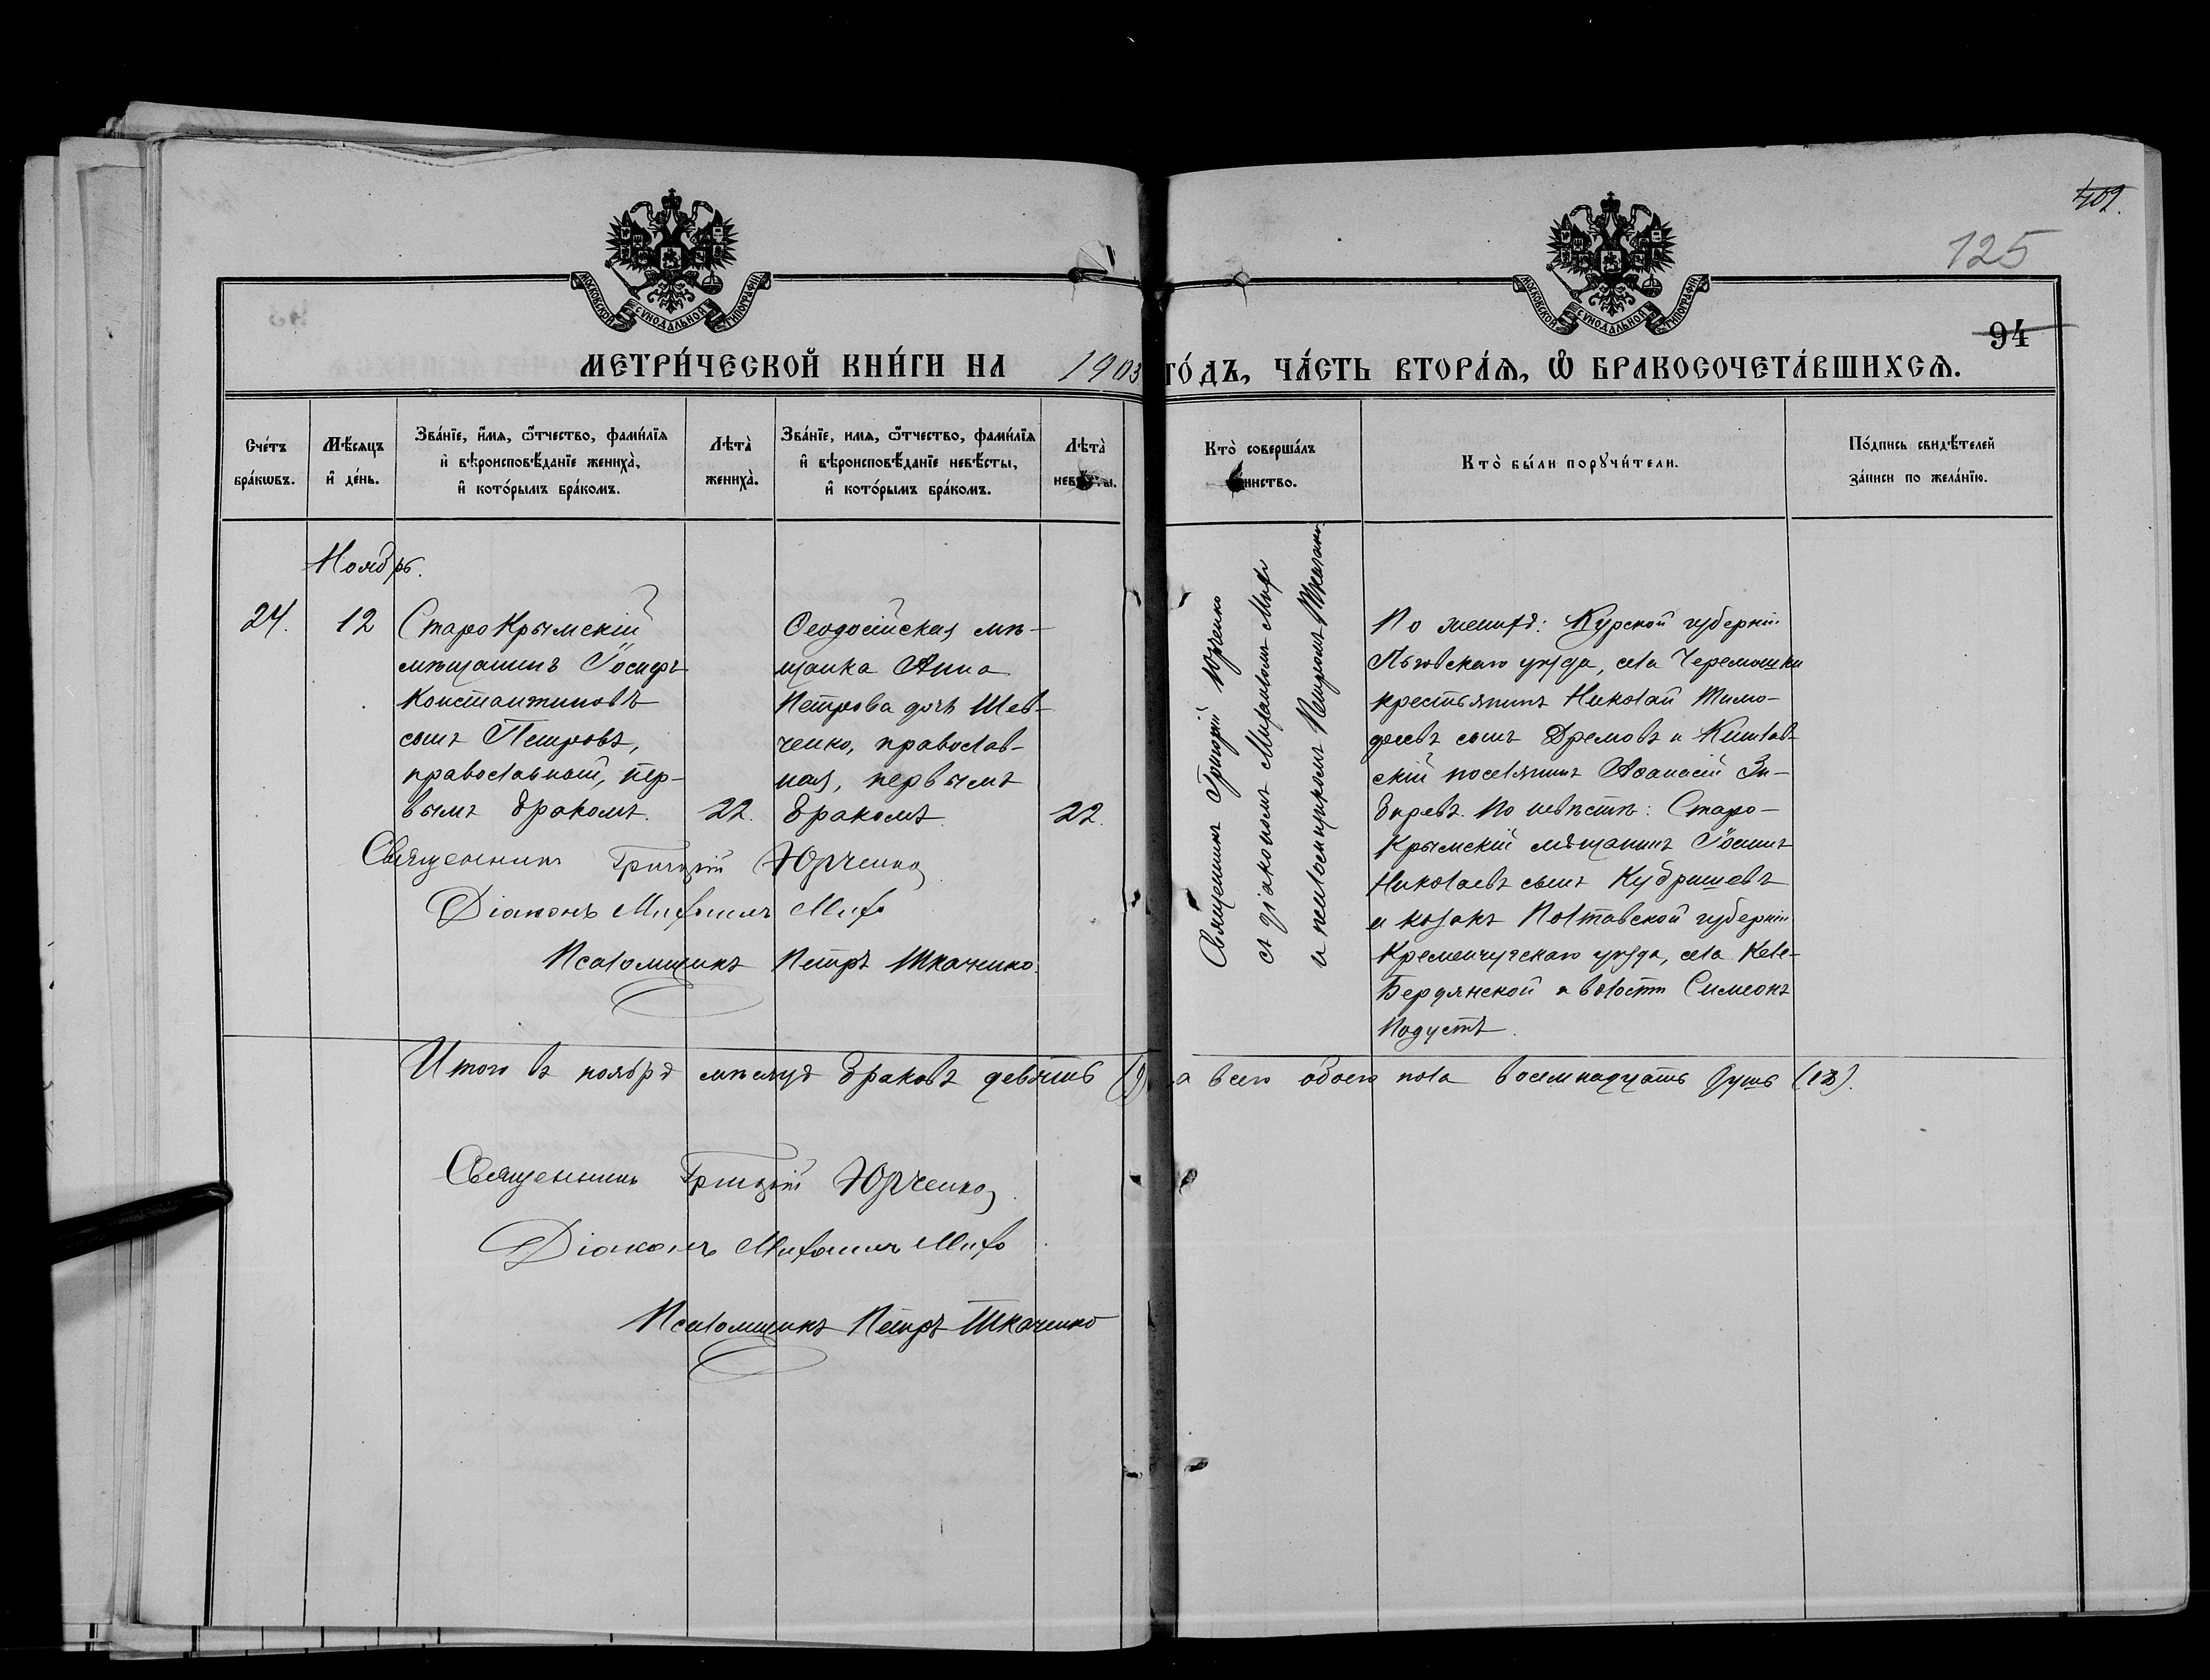 МОСКОВСКОЙ СУНОДАЛЬНОЙ ТИПОГРАФІИ
МОСКОВСКОЙ СУНОДАЛЬНОЙ ТИПОГРАФІИ
409.
125
94
МЕТРИ́ЧЕСКОЙ КНИ́ГИ НА 1903 ГО́ДЪ, ЧА́СТЬ ВТОРА́Ѧ, Ѽ БРАКОСОЧЕТА́ВШИХСѦ.
Сче́тъ
бра́кѡвъ.
Мѣ́сяцъ
и҆ де́нь.
Зва́нїе, и҆́мѧ, ѻ҆́тчество, фами́лїѧ
и҆ вѣроисповѣ́данїе жениха̀,
и҆ кото́рымъ бра́комъ.
Лѣта̀
жениха̀.
Зва́нїе, имѧ, ѻ҆́тчество, фами́лїѧ
и҆ вѣроисповѣ́данїе невѣ́сты,
и҆ кото́рымъ бра́комъ.
Лѣта̀
невѣ́сты.
Кто̀ соверша́лъ
та́инство.
Кто̀ бы́ли порꙋчи́тели.
По́дпись свидѣ́телей
за́писи по жела́нїю.
Ноябрь.
24.
12
Старокрымскій
мѣщанинъ Іосифъ
Константиновъ
сынъ Петровъ,
православный, пер-
вымъ бракомъ.
22.
Ѳеодосійская мѣ-
щанка Анна
Петрова дочь Шев-
ченко, православ-
ная, первымъ
бракомъ.
22.
Священникъ Григорій Юрченко
съ діакономъ
и псаломщикомъ Петромъ Ткаченко.
По женихѣ: Курской губерніи
Льговскаго уѣзда, села Черемошки
крестьянинъ Николай Тимо-
феевъ сынъ Дремовъ и Кишлав-
скій поселянинъ Аѳанасій Зи-
биревъ. По невѣстѣ: Старо-
Крымскій мѣщанинъ Іосифъ
Николаевъ сынъ Кубришевъ
и козакъ Полтавской губерніи
Кременчугскаго уѣзда, села Келе-
Бердянской волости Симеонъ
Подустъ.
Священникъ Григорій Юрченко
Діаконъ
Псаломщикъ Петръ Ткаченко.
Итого въ ноябрѣ мѣсяцѣ браковъ девять (9) а всего обоего пола восемнадцать душъ (18).
Священникъ Григорій Юрченко
Діаконъ
Псаломщикъ Петръ Ткаченко